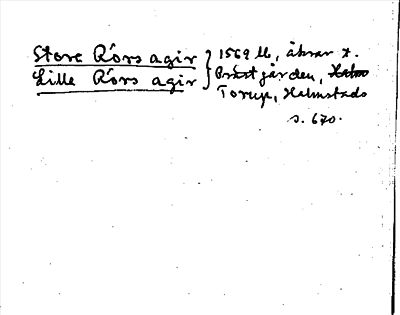 Store Rörs agir } 1569 lb, åkrar t.
Lille Rörs agir } Prästgården,
Torup, Halmstads
s. 670.